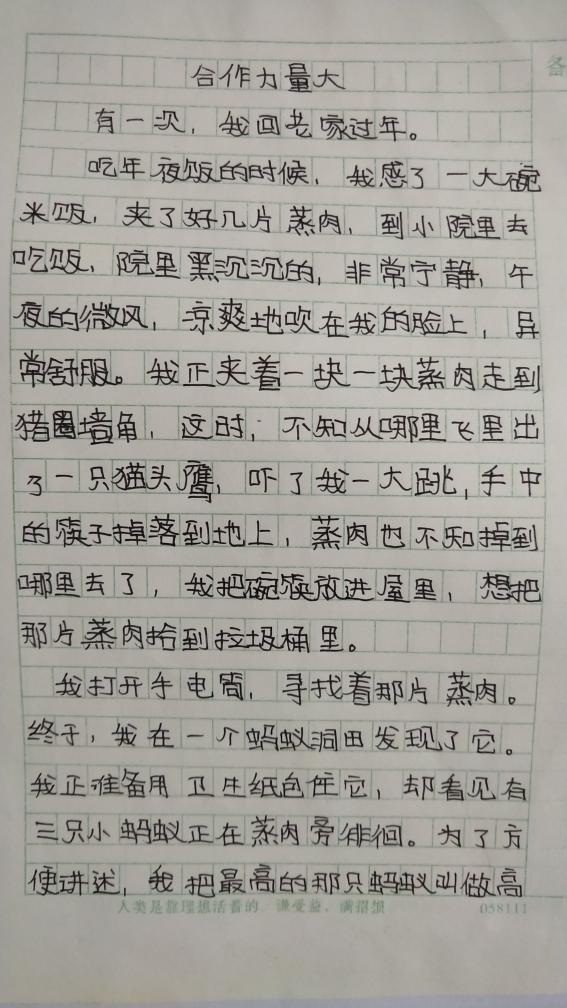 备
合作力量大
有一次，我回老家过年。
吃年夜饭的时候，我感了一大碗
米饭，夹了好几片蒸肉，到小院里去
吃饭，院里黑沉沉的，非常宁静，午
夜的微风，凉爽地吹在我的脸上，异
常舒服。我正夹着一块一块蒸肉走到
猪圈墙角，这时，不知从哪里飞里出
了一只猫头鹰，吓了我一大跳，手中
的筷子掉落到地上，蒸肉也不知掉到
哪里去了，我把碗筷放进屋里，想把
那片蒸肉拾到垃圾桶里。
我打开手电筒，寻找着那片蒸肉。
终于，我在一个蚂蚁洞田发现了它。
我正准备用卫生纸包住它，却看见有
三只小蚂蚁正在蒸肉旁徘徊。为了方
便讲述，我把最高的那只蚂蚁叫做高
人类是靠理想活着的 谦受益，满招损 058111